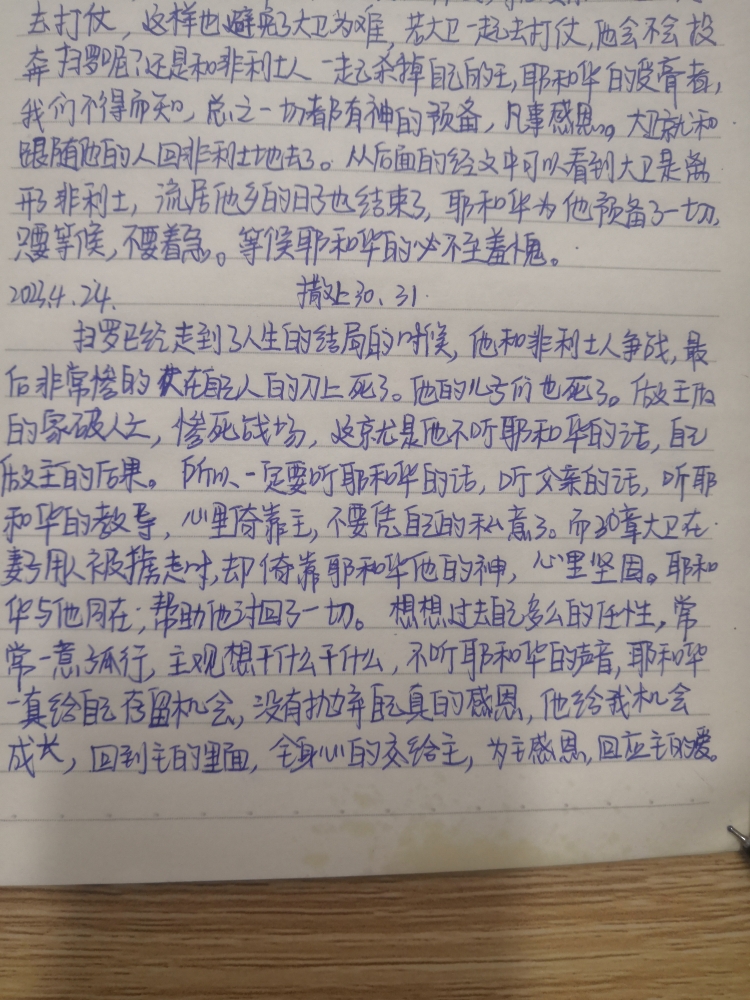 去打仗，这样也避免了大卫为难，若大卫一起去打仗，他会不会投
奔扫罗呢？还是和非利士人一起杀掉自己的王，耶和华的受膏者，
我们不得而知，总之一切都有神的预备，凡事感恩。大卫就和
跟随他的人回非利士地去了。从后面的经文中可以看到大卫是离
开了非利士，流居他乡的日子也结束了，耶和华为他预备了一切，
只要等候，不要着急。等候耶和华的必不至羞愧。
2023.4.24. 撒上30、31.
扫罗已经走到了人生的结局的时候，他和非利士人争战，最
后非常惨的伏在自己人的刀上死了。他的儿子们也死了。做王
的家破人亡，惨死战场，这就是他不听耶和华的话，自己
做主的后果。所以一定要听耶和华的话，听父亲的话，听耶
和华的教导，心里倚靠主，不要凭自己的私意了。而30章大卫在
妻子用人被掳走时，却倚靠耶和华他的神，心里坚固。耶和
华与他同在，帮助他讨回了一切。想想过去自己多么的任性，常
常一意孤行，主观想干什么干什么，不听耶和华的声音，耶和华
一直给自己存留机会，没有抛弃自己真的感恩，他给我机会
成长，回到主的里面，全身心的交给主，为主感恩，回应主的爱。